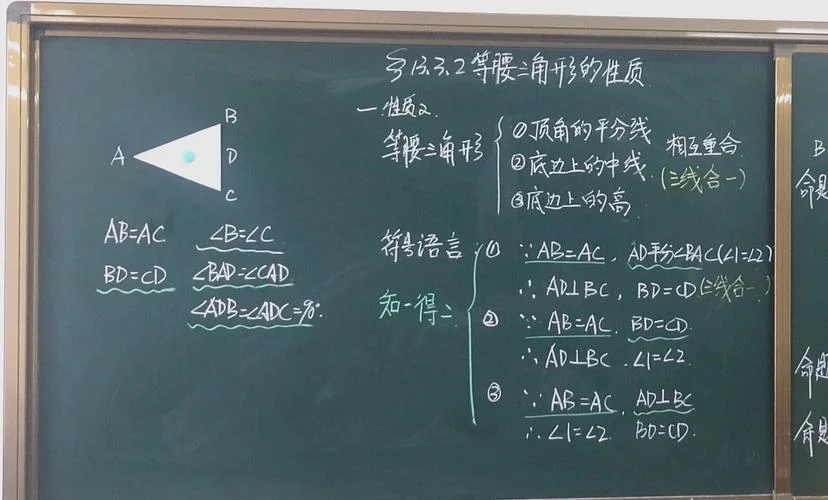 §13.3.2 等腰三角形的性质
一.性质2.
等腰三角形
①顶角的平分线
②底边上的中线
③底边上的高
相互重合
(三线合一)
A
B
D
C
AB=AC. ∠B=∠C
BD=CD ∠BAD=∠CAD
∠ADB=∠ADC=90°.
符号语言
知一得二
① ∵AB=AC, AD平分∠BAC(∠1=∠2)
∴AD⊥BC, BD=CD(三线合一)
② ∵AB=AC, BD=CD.
∴AD⊥BC, ∠1=∠2.
③ ∵AB=AC, AD⊥BC
∴∠1=∠2. BD=CD.
B
命题
命题
命题